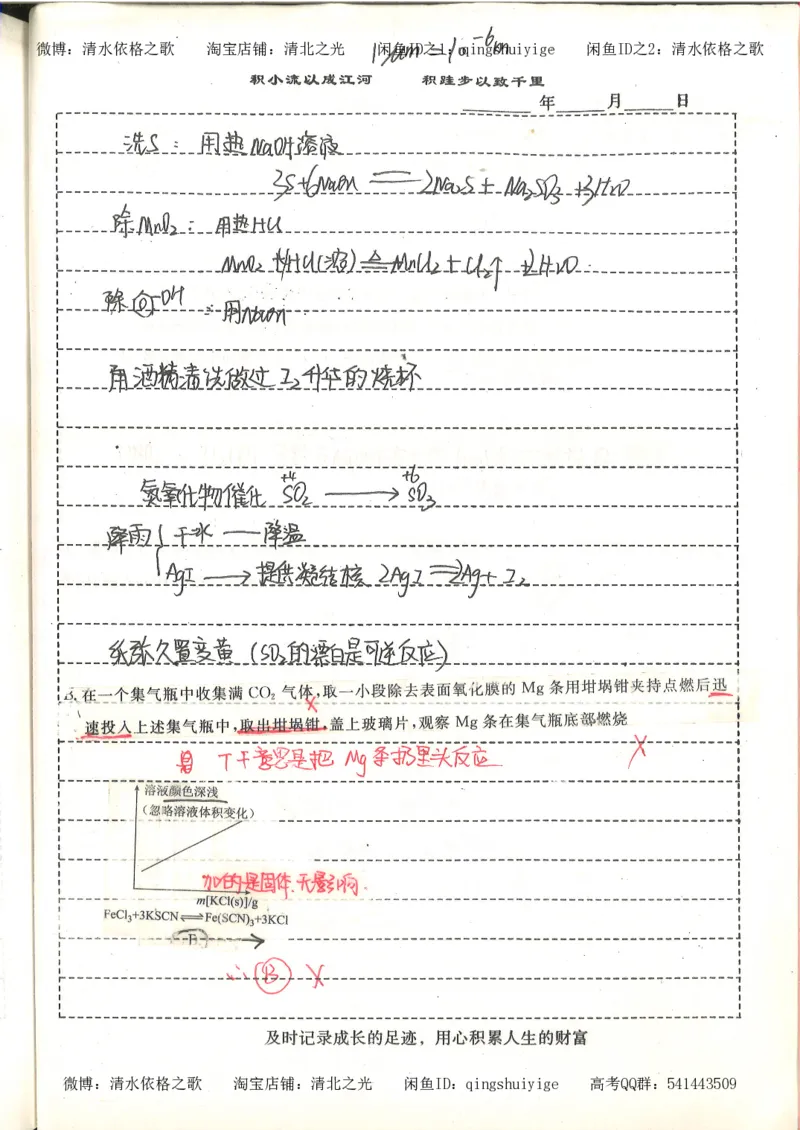 微博：清水依格之歌 淘宝店铺：清北之光 闲鱼ID之1：qingshuiyige 闲鱼ID之2：清水依格之歌
积小流以成江河 积跬步以致千里
年 月 日
洗S：用热NaOH溶液
3S+6NaOH══2Na₂S+Na₂SO₃+3H₂O
除MnO₂：用热HCl
MnO₂+4HCl(浓)≜MnCl₂+Cl₂↑+2H₂O
除 -OH：用NaOH
用酒精清洗做过I₂升华的烧杯
氮氧化物催化 +4 SO₂ ⟶ +6 SO₃
降雨{干冰——降温
AgI⟶提供凝结核 2AgI══2Ag+I₂
纸张久置变黄（SO₂的漂白是可逆反应）
B.在一个集气瓶中收集满CO₂气体,取一小段除去表面氧化膜的Mg条用坩埚钳夹持点燃后迅
速投入上述集气瓶中,取出坩埚钳,盖上玻璃片,观察Mg条在集气瓶底部燃烧
把Mg条扔里头反应 ×
溶液颜色深浅
（忽略溶液体积变化）
加的是固体,无影响.
m[KCl(s)]/g
FeCl₃+3KSCN⇌Fe(SCN)₃+3KCl
∴ B ×
及时记录成长的足迹，用心积累人生的财富
微博：清水依格之歌 淘宝店铺：清北之光 闲鱼ID：qingshuiyige 高考QQ群：541443509